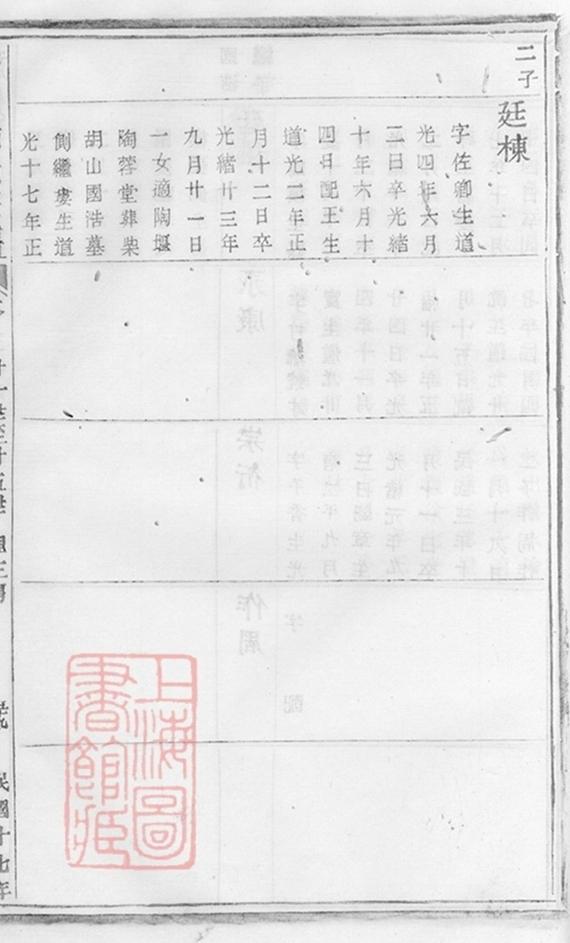 二子
廷棟
字佐卿生道
光四年六月
三日卒光緒
十年六月十
四日配王生
道光二年正
月十二日卒
光緒廿三年
九月廿一日
一女適陶堰
陶蓉堂葬柴
胡山國浩墓
側繼婁生道
光十七年正
民國十七年
上海圖
書館藏